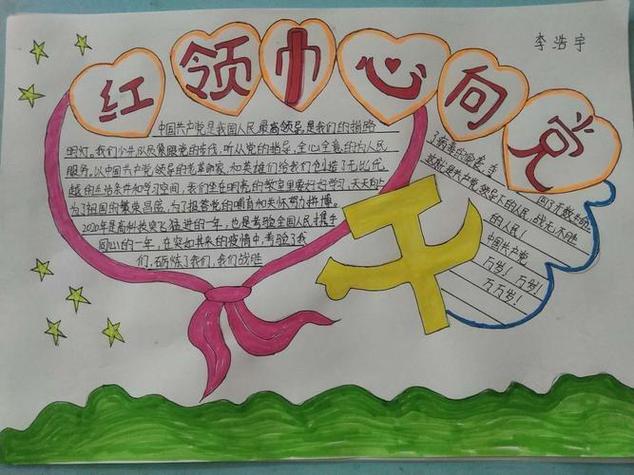 红领巾心向党
李浩宇
中国共产党是我国人民最高领导,是我们的指路
明灯。我们少先队员紧跟党的步伐,听从党的指导,全心全意的为人民
服务,以中国共产党领导的先革命家,和英雄们给我们创造了无比优
越的生活条件和学习空间,我们坐在明亮的教室里要好好学习,天天向上
为了祖国的繁荣昌盛,为了报答党的哺育和关怀努力拼搏。
2020年是高州的一年,也是考验全国人民携手
同心的一年,在突如其来的疫情中,考验了我
们,砺炼了我们,我们战胜
了病毒的
就是共产党领导下的人民,战无不胜
的人民!
中国共产党
万岁!万岁!
万万岁!